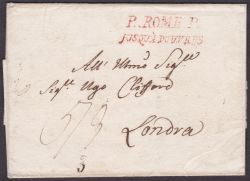 P. ROME P.
JUSQU'A DOUVRES
All' Illmo Sigre
Sigr. Ugo Clifford
Londra
3